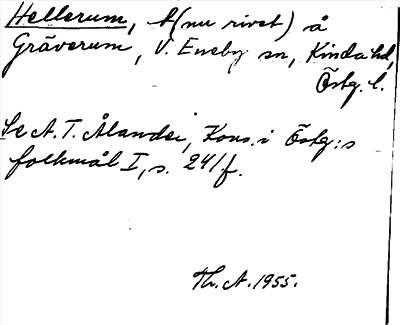 Hellerum, t (nu rivet) å
Gräverum, V. Eneby sn, Kinda hd,
Östg. l.
Se A. T. Ålander, Kons. i Östg:s
folkmål I, s. 241 f.
Th. A. 1955.